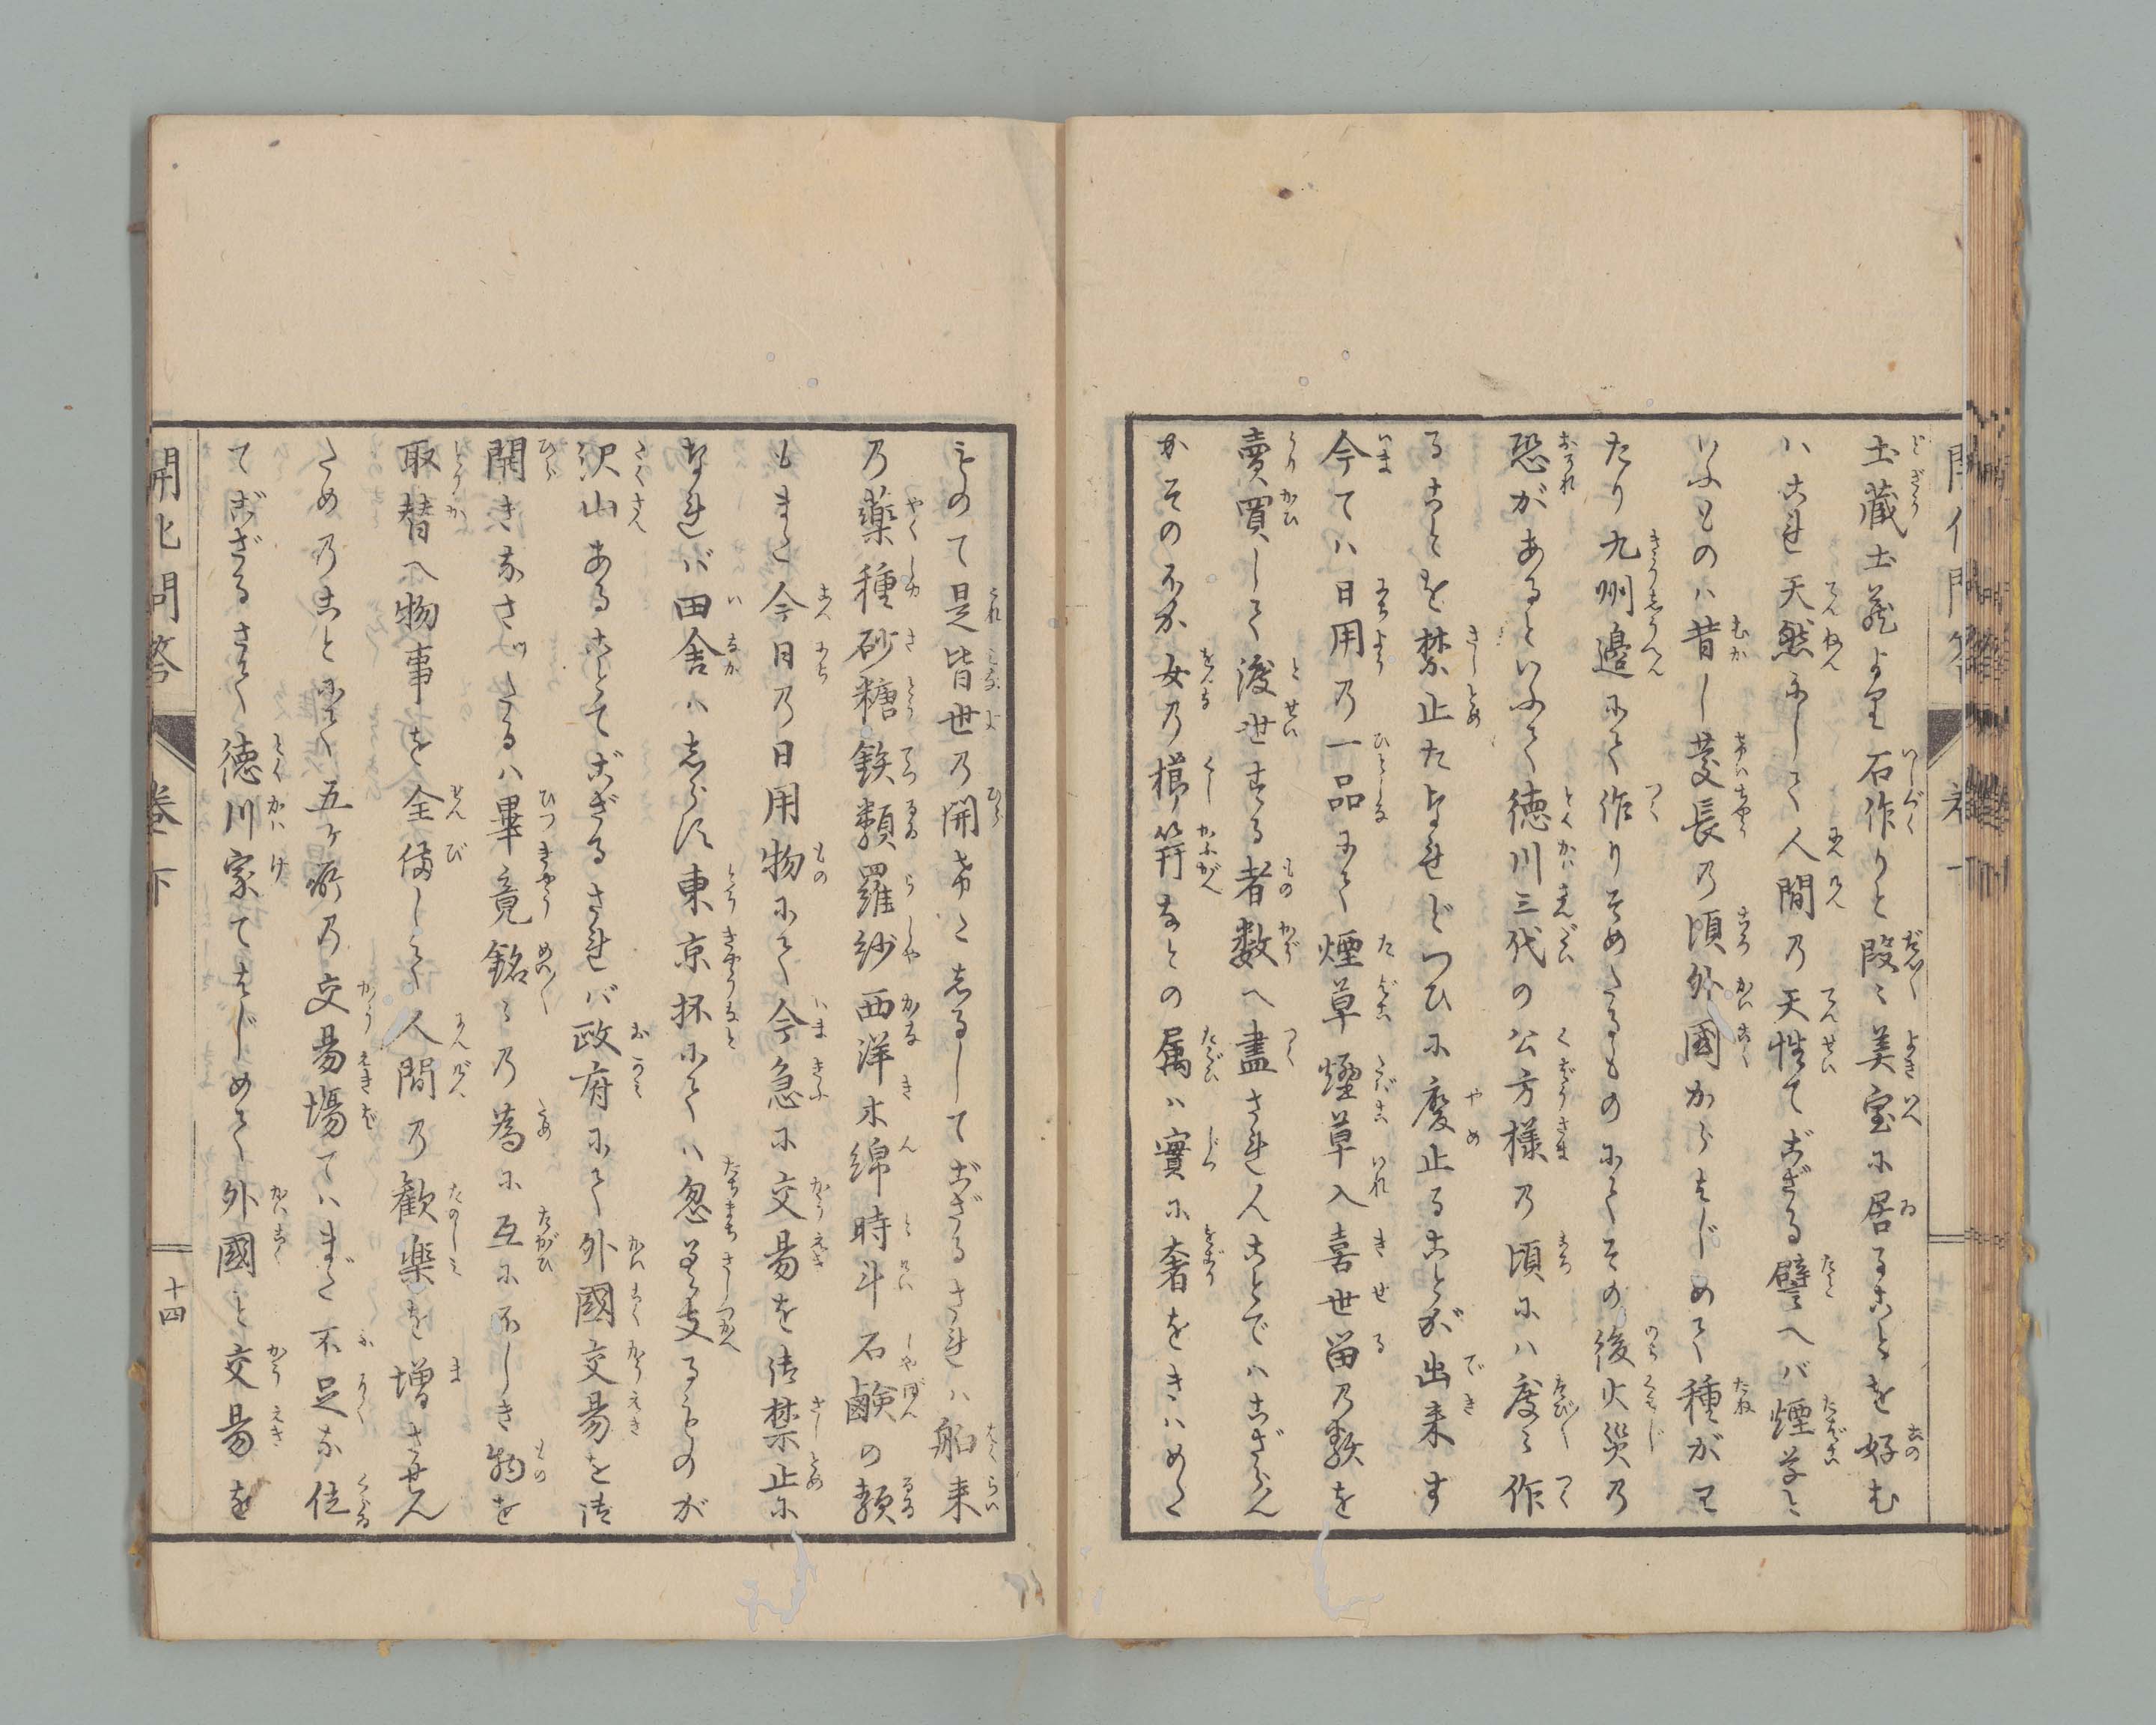 土藏土蔵より石作りと段々美室に居ることを好む
ハこれ天然にして人間の天性てござる譬へバ煙草と
いふものハ昔し慶長の頃外國からはじめて種がわ
たり九州邊にて作りそめたるものにてその後火災の
恐があるといふて徳川三代の公方様の頃にハ度々作
ることを禁止たなれどつひに廃止ることが出来す
今てハ日用の一品にて煙草煙草入喜世留の類を
賣買して渡世する者数へ盡されんことでハござらん
かその外女の櫛笄なとの属ハ實に奢をきハめた
ものて是皆世の開けたしるしてござるされハ舶来
の薬種砂糖鉄類羅紗西洋木綿時斗石鹸の類
もまた今日の日用物にて今急に交易を御禁止に
なれバ田舎ハしらず東京抔にてハ忽ち差支るものが
沢山あることてござるされバ政府にて外國交易を御
開きなさつたるハ畢竟銘々の為に互にほしき物を
取替へ物事を全備して人間の歓楽を増させん
ためのことにて五ヶ所の交易場てハまだ不足な位
てござるさて徳川家てはじめて外國と交易を
開化問答
卷下
十四